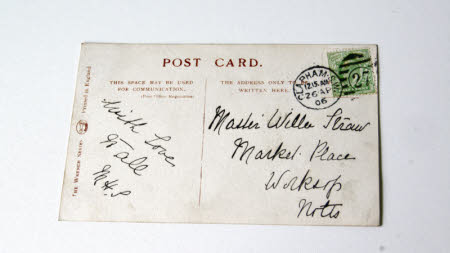 POST CARD.
THIS SPACE MAY BE USED
FOR COMMUNICATION.
(Post Office Regulation)
THE ADDRESS ONLY TO
WRITTEN HERE
With Love
to all
Master Willie Straw
Market Place
Worksop
Notts
CLAPHAM
12.15 AM
26 AP
06
THE WRENCH SERIES
Printed in England